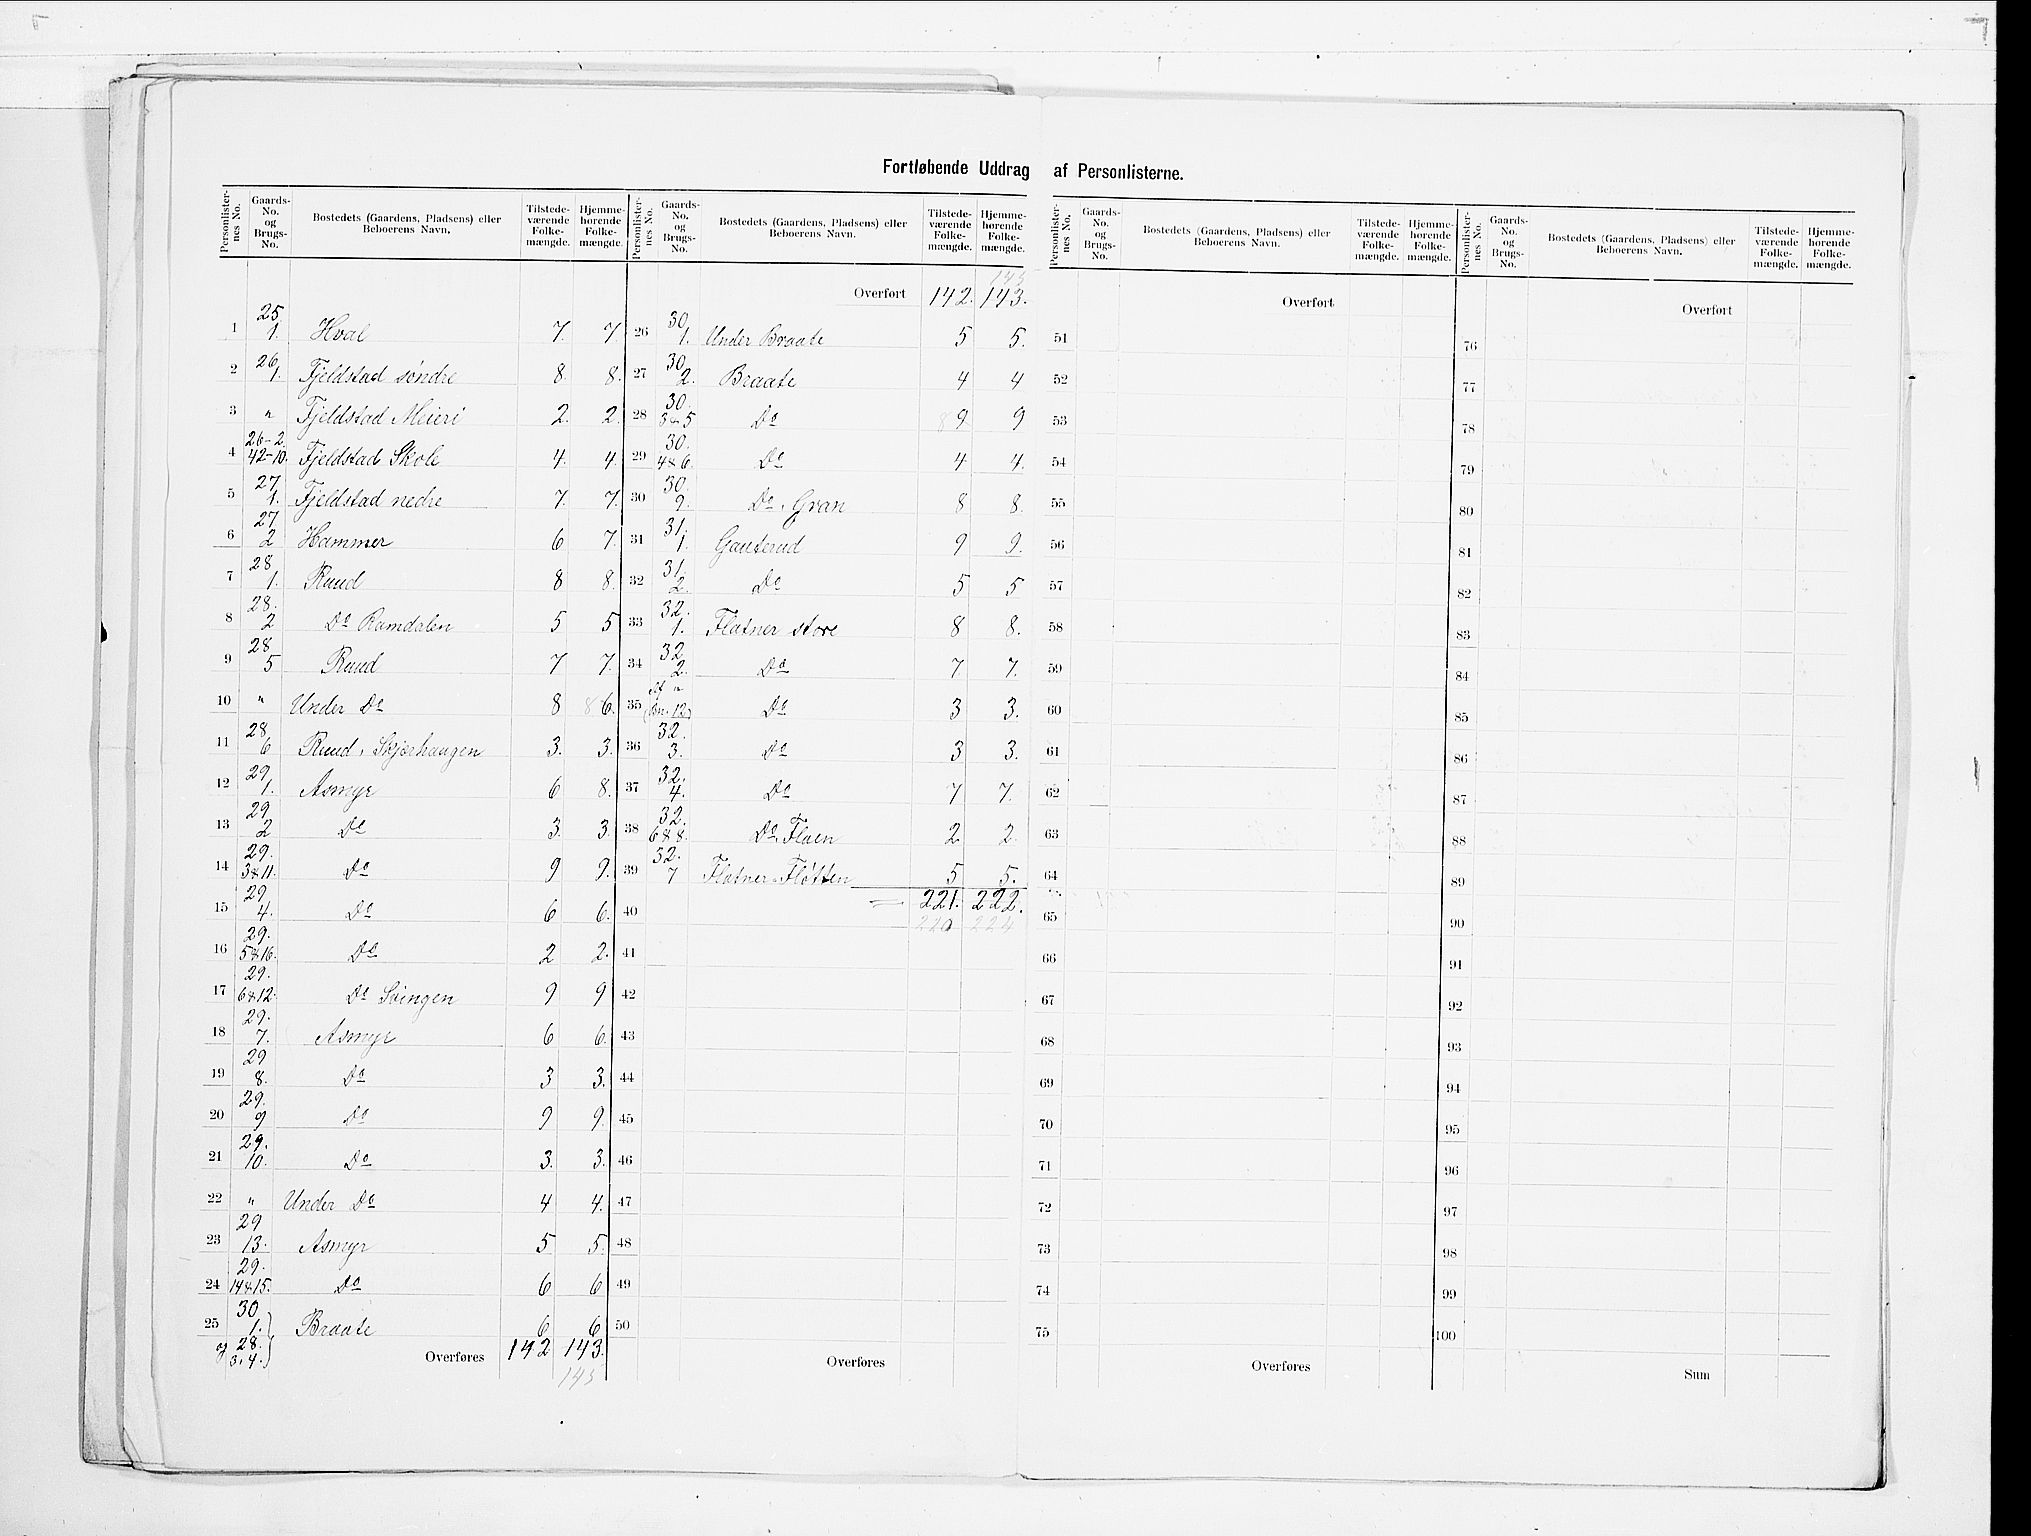 Fortløbende Uddrag af Personlisterne.
Personlisternes No. Gaards-No. og Brugs-No. Bostedets (Gaardens, Pladsens) eller Beboerens Navn. Tilstedeværende Folkemængde. Hjemmehørende Folkemængde.
1 25. 1. Hval 7. 7.
2 26 1. Fjeldstad søndre 8. 8.
3 " Fjeldstad Meieri 2. 2.
4 26-2. 42-10. Fjeldstad Skole 4. 4.
5 27 1. Fjeldstad nedre 7. 7.
6 27 2 Hammer 6 7.
7 28 1. Ruud 8 8.
8 28. 2 Do Ramdalen 5 5
9 28 5 Ruud 7 7.
10 " Under Do 8 8 6.
11 28 6 Ruud, Skjærhaugen 3. 3.
12 29 1. Asmyr 6 8.
13 29 2 Do 3. 3.
14 29. 3&11. Do 9 9.
15 29 4. Do 6 6.
16 29. 5&16. Do 2 2.
17 29. 6&12. Do Svingen 9 9
18 29. 7. Asmyr 6 6.
19 29 8. Do 3 3.
20 29. 9 Do 9 9.
21 29. 10. Do 3. 3.
22 " Under Do 4 4.
23 29 13. Asmyr 5 5.
24 29. 14&15. Do 6 6
25 30 1. og 28. 3, 4. Braate 6 6
Overføres 142 143.
145
Personlisternes No. Gaards-No. og Brugs-No. Bostedets (Gaardens, Pladsens) eller Beboerens Navn. Tilstedeværende Folkemængde. Hjemmehørende Folkemængde.
145
Overført 142. 143.
26 30 1. Under Braate 5 5.
27 30 2. Braate 4 4
28 30. 3&5 Do 8 9 9
29 30. 4&6. Do 4 4.
30 30. 9. Do, Gran 8 8.
31 31. 1. Gauterud 9 9.
32 31. 2. Do 5 5
33 32. 1. Flatner store 8 8.
34 32 2. Do 7 7.
35 Af " Do 3 3.
36 32. 3. Do 3 3.
37 32. 4. Do 7 7.
38 32. 6&8. Do, Floen 2 2.
39 32. 7 Flatner, Fløtten 5 5.
40 = 221. 222.
220 224
41
42
43
44
45
46
47
48
49
50
Overføres
Personlisternes No. Gaards-No. og Brugs-No. Bostedets (Gaardens, Pladsens) eller Beboerens Navn. Tilstedeværende Folkemængde. Hjemmehørende Folkemængde.
Overført
51
52
53
54
55
56
57
58
59
60
61
62
63
64
65
66
67
68
69
70
71
72
73
74
75
Overføres
Personlisternes No. Gaards-No. og Brugs-No. Bostedets (Gaardens, Pladsens) eller Beboerens Navn. Tilstedeværende Folkemængde. Hjemmehørende Folkemængde.
Overført
76
77
78
79
80
81
82
83
84
85
86
87
88
89
90
91
92
93
94
95
96
97
98
99
100
Sum